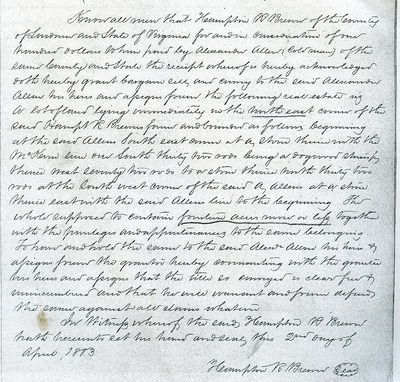 Know all men that Hampton R Brewer of the County
of Loudoun and State of Virginia for and in consideration of one
hundred dollars to him paid by Alexander Allen (Cold man) of the
same County and State the receipt whereof is hereby acknowledged
doth hereby grant bargain sell and convey to the said Alexander
Allen his heirs and assigns forever the following real estate viz
A lot of land lying immediately in the north east corner of the
said Hampt R Brewer farm and bounded as follows beginning
at the said Allens South east corner at a stone thence with the
line due South thirty two rods being a dogwood stump,
thence west seventy two rods to a stone thence North thirty two
rods at the South west corner of the said A, Allens at a stone
thence east with the said Allens line to the beginning The
whole supposed to contain fourteen acres more or less together
with the privileges and appurtenances to the same belonging
To have and hold the same to the said Alexr Allen his heirs &
assigns forever the grantor hereby covenanting with the grantee
his heirs and assigns that the title so conveyed is clear free &
unincumbered and that he will warrant and forever defend
the same against all claims whatever
In Witness whereof the said Hampton R Brewer
hath hereunto set his hand and seal, this 2nd day of
April 1883
Hampton R Brewer Seal